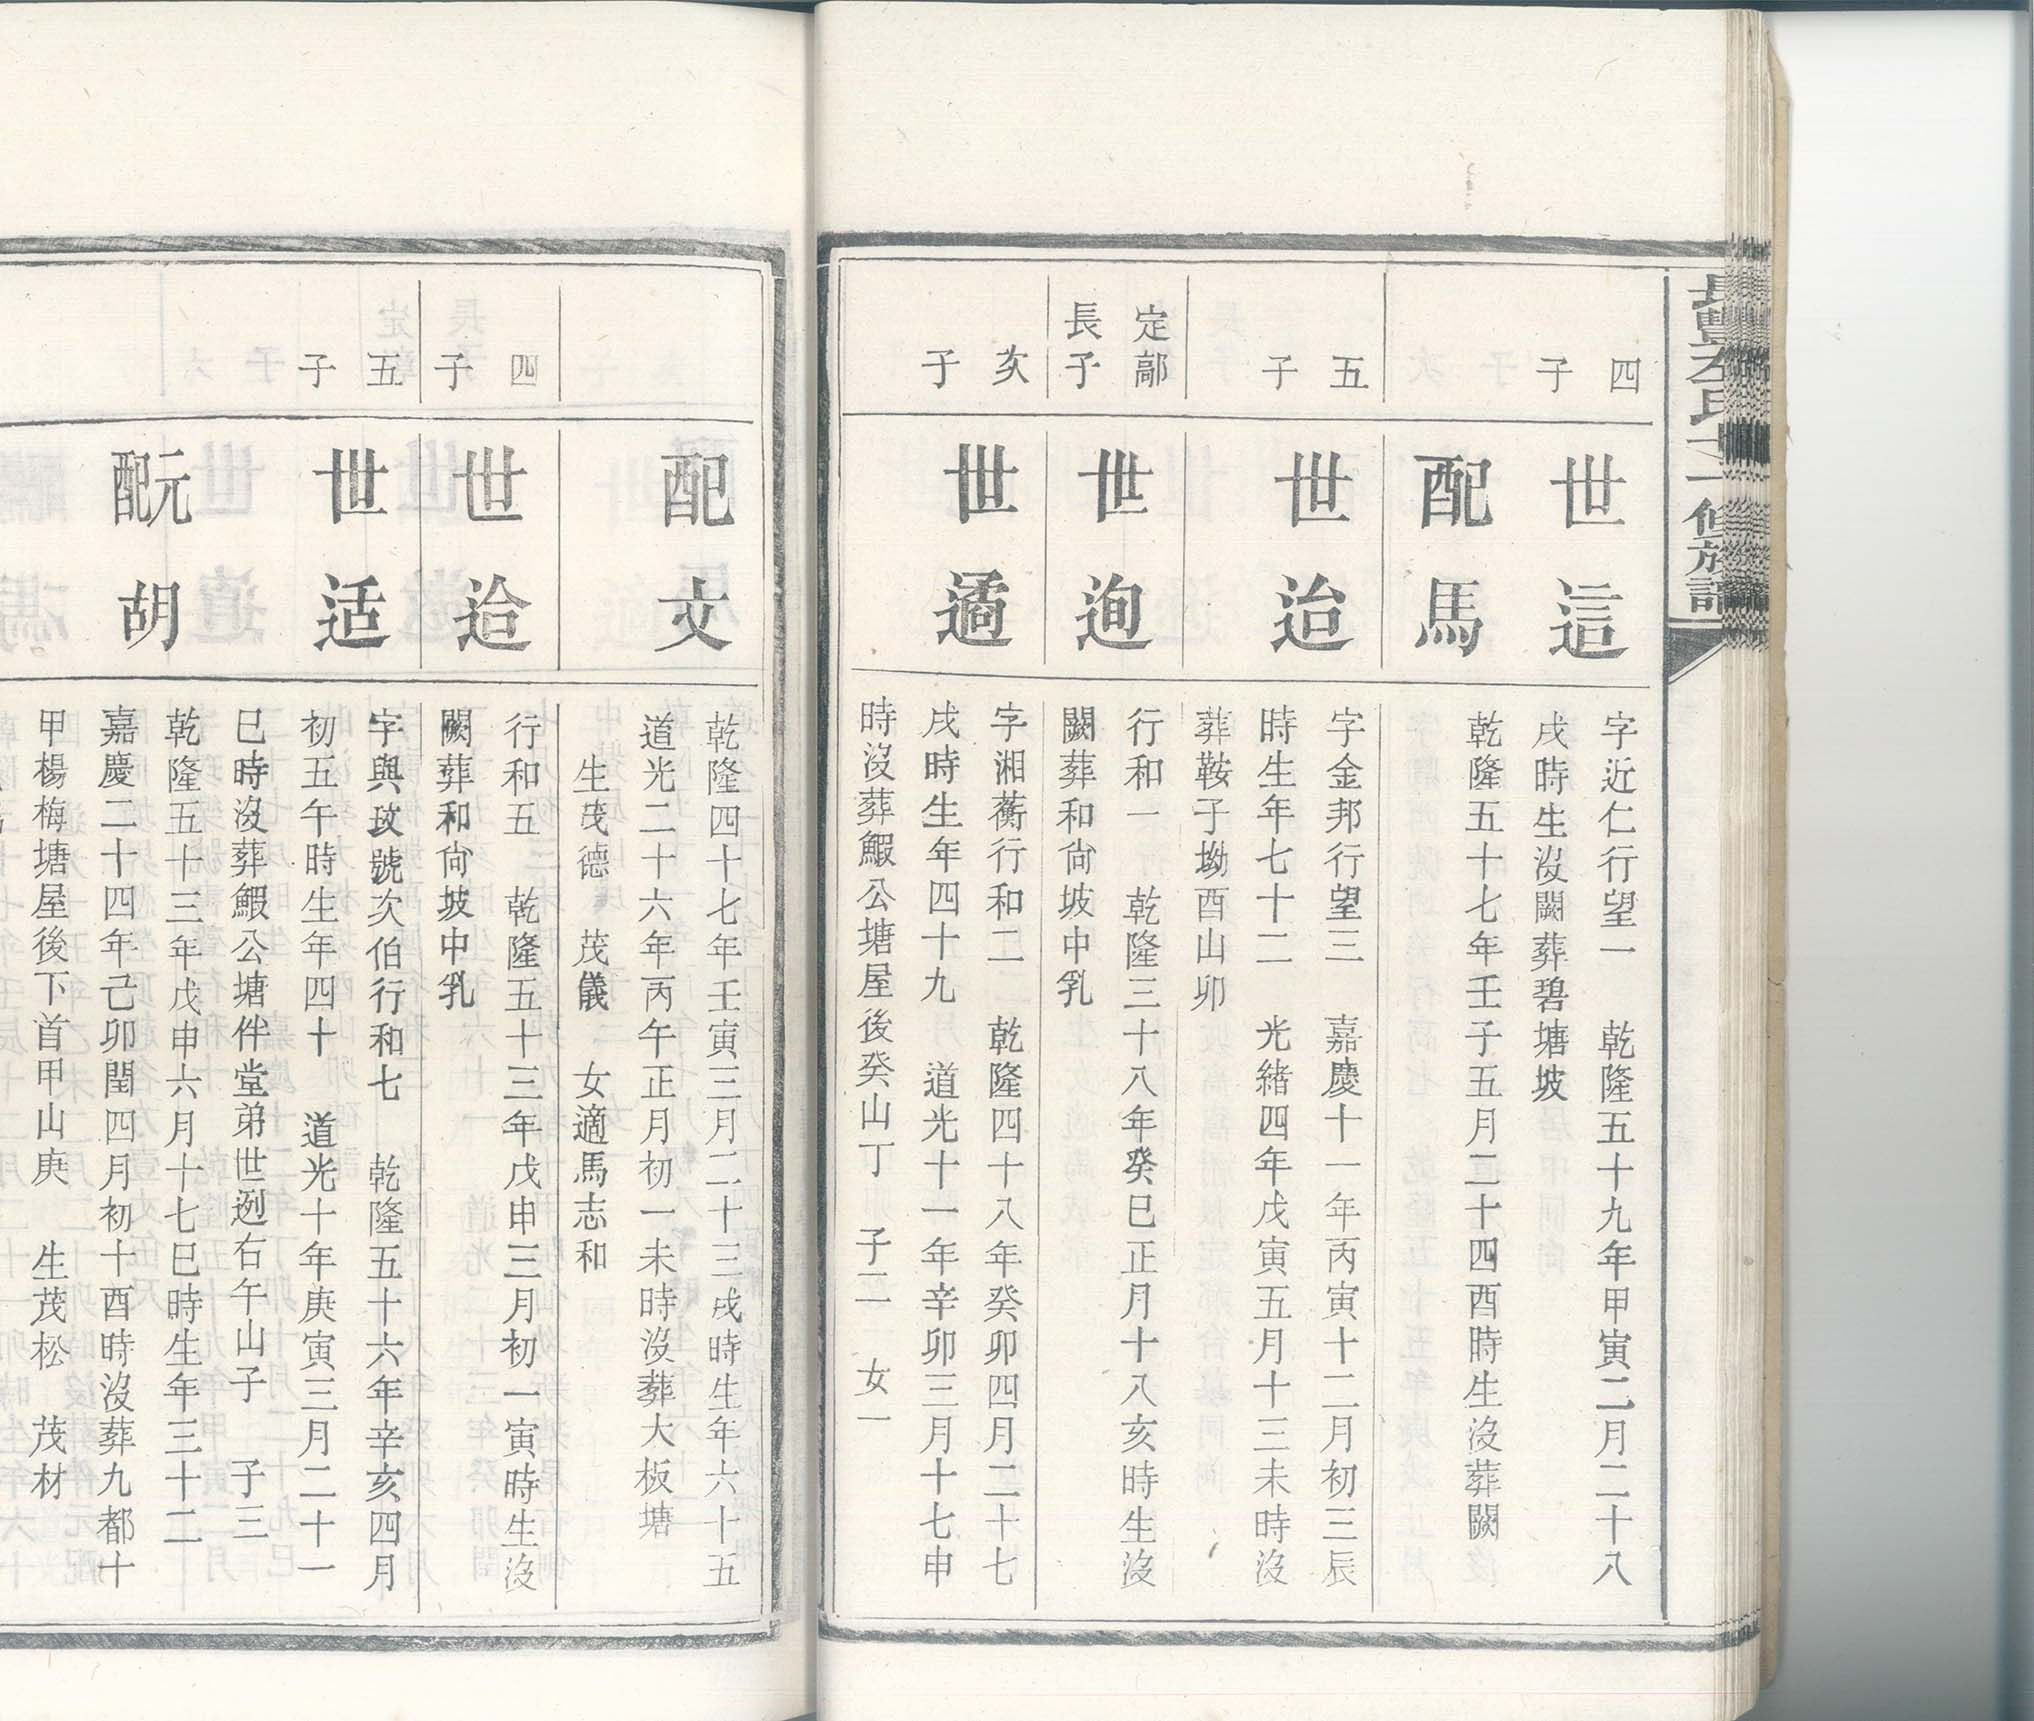 四子
世這
字近仁行望一　乾隆五十九年甲寅二月二十八
戌時生沒闕葬碧塘坡
配馬
乾隆五十七年壬子五月二十四酉時生沒葬闕
五子
世迨
字金邦行望三　嘉慶十一年丙寅十二月初三辰
時生年七十二　光緒四年戊寅五月十三未時沒
葬鞍子坳酉山卯
定鄗長子
世迿
行和一　乾隆三十八年癸巳正月十八亥時生沒
闕葬和尙坡中乳
次子
世遹
字湘蘅行和二　乾隆四十八年癸卯四月二十七
戌時生年四十九　道光十一年辛卯三月十七申
時沒葬鰕公塘屋後癸山丁　子二　女一
配文
乾隆四十七年壬寅三月二十三戌時生年六十五
道光二十六年丙午正月初一未時沒葬大板塘
生茂德　茂儀　女適馬志和
四子
世迨
行和五　乾隆五十三年戊申三月初一寅時生沒
闕葬和尙坡中乳
五子
世适
字與玫號次伯行和七　乾隆五十六年辛亥四月
初五午時生年四十　道光十年庚寅三月二十一
巳時沒葬鰕公塘伴堂弟世迾右午山子　子三
元配胡
乾隆五十三年戊申六月十七巳時生年三十二
嘉慶二十四年己卯閏四月初十酉時沒葬九都十
甲楊梅塘屋後下首甲山庚　生茂松　茂材